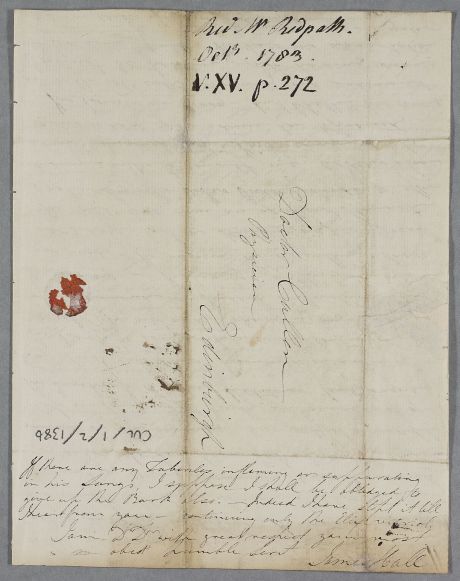 Revd. Mr Redpath.
Octr. 1783.
V.XV. p. 272
Doctor Cullen
Physician
Edinburgh
CUL/1/2/1386
If there are any Tubercles inflaming or suppurating
in his Lungs, I suppose I shall be obliged to
give up the Bark also. — Indeed I have stopt it till
I hear from you — continuing only the
I am Dr Sr with great respect your most
obedt humble Servt
James Hall